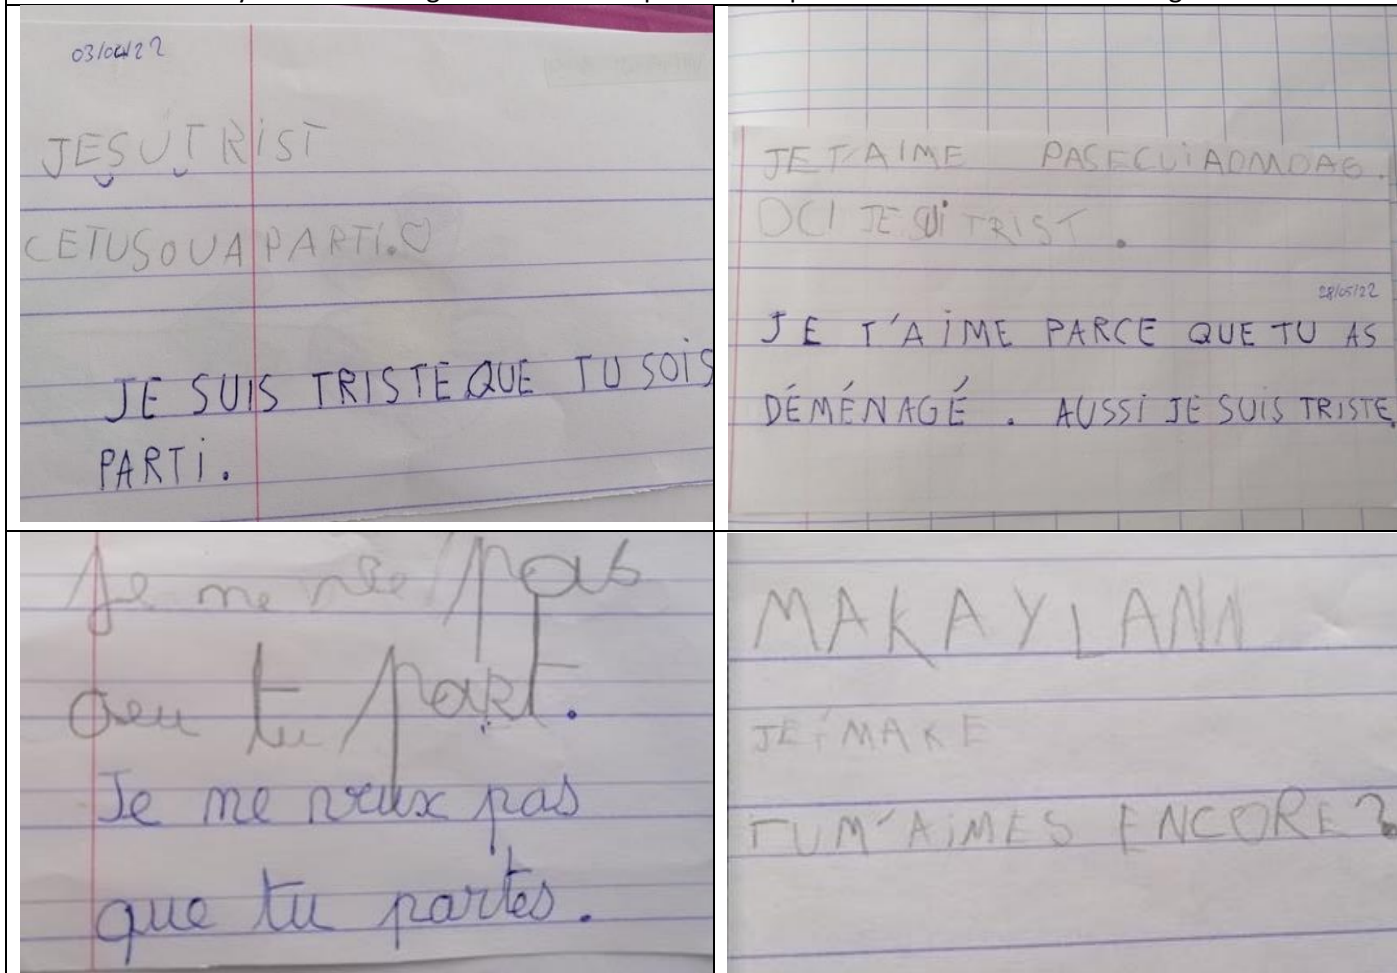 03/04/22
JESUTRIST
CETUSOUAPARTI.♡
JE SUIS TRISTE QUE TU SOIS
PARTI.
JE T'AIME PASECUIADMDAG.
OCI JE SUI TRIST.
28/05/22
JE T'AIME PARCE QUE TU AS
DÉMÉNAGÉ. AUSSI JE SUIS TRISTE.
Je ne pas
tu part.
Je ne veux pas
que tu partes.
MAKAYLANN
JE MAKE
TUM'AIMES ENCORE?